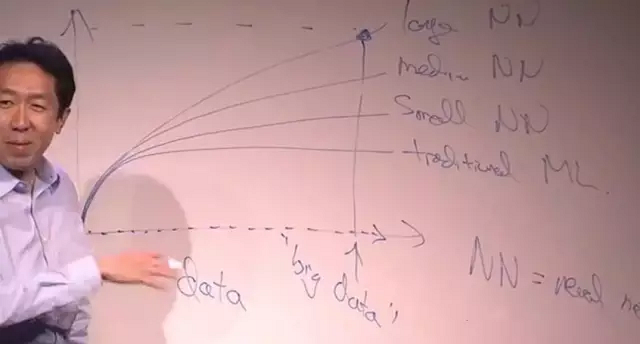 large NN
medium NN
Small NN
traditional ML.
data
"big data"
NN =